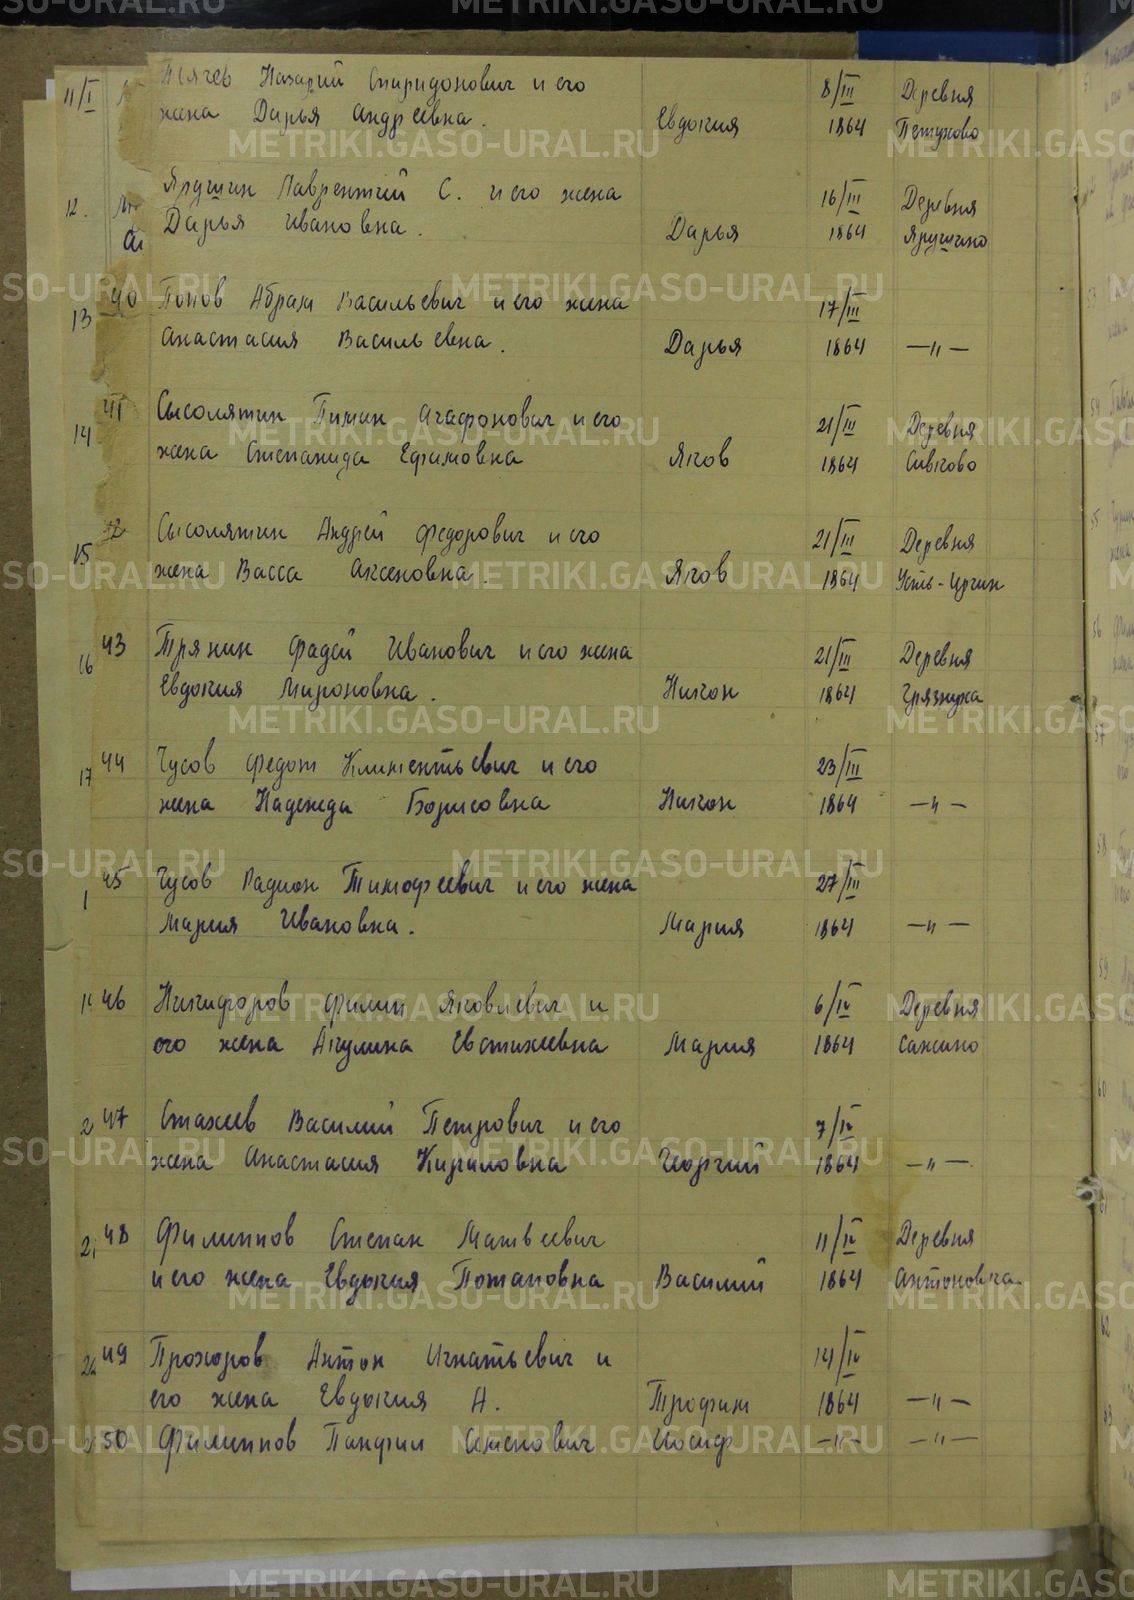 METRIKI.GASO-URAL.RU
11/I Назарий Спиридонович и его 8/III Деревня
жена Дарья Андреевна. Евдокия 1864 Петухово
12. Ярушин Лаврентий С. и его жена 16/III Деревня
Дарья Ивановна. Дарья 1864 Ярушино
13 40 Попов Абрам Васильевич и его жена 17/III
Анастасия Васильевна. Дарья 1864 —"—
14 41 Сысолятин Пимин Агафонович и его 21/III Деревня
жена Степанида Ефимовна Яков 1864 Сивково
15 42 Сысолятин Андрей Федорович и его 21/III Деревня
жена Васса Аксеновна. Яков 1864 Усть-Иргин
16 43 Трянин Фадей Иванович и его жена 21/III Деревня
Евдокия Мироновна. Никон 1864 Грязнуха
17 44 Чусов Федот Климентьевич и его 23/III
жена Надежда Борисовна Никон 1864 —"—
1 45 Чусов Радион Тимофеевич и его жена 27/III
Мария Ивановна. Мария 1864 —"—
1 46 Никифоров Филип Яковлевич и 6/IV Деревня
его жена Акулина Евстихеевна Мария 1864 Сажино
2 47 Стахеев Василий Петрович и его 7/IV
жена Анастасия Кириловна Георгий 1864 —"—
2 48 Филиппов Степан Матвеевич 11/IV Деревня
и его жена Евдокия Потаповна Василий 1864 Антоновка
22 49 Прохоров Антон Игнатьевич и 14/IV
его жена Евдокия А. Трофим 1864 —"—
2 50 Филиппов Панфил Семенович Иосиф —"— —"—